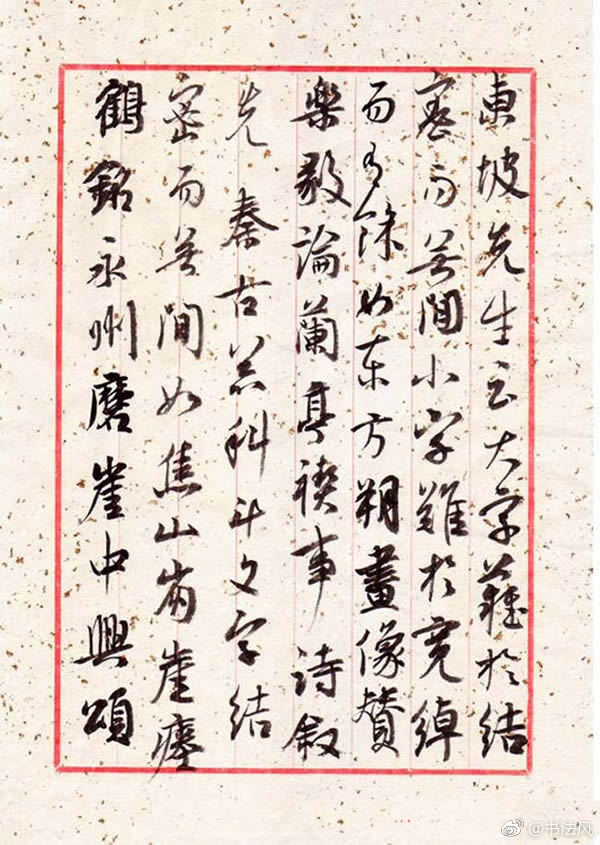 東坡先生云大字難於結
密而無間小字難於寬綽
而有餘如東方朔畫像贊
樂毅論蘭亭禊事詩敘
先秦古器科斗文字結
密而無間如焦山崩崖瘞
鶴銘永州磨崖中興頌
@书法风